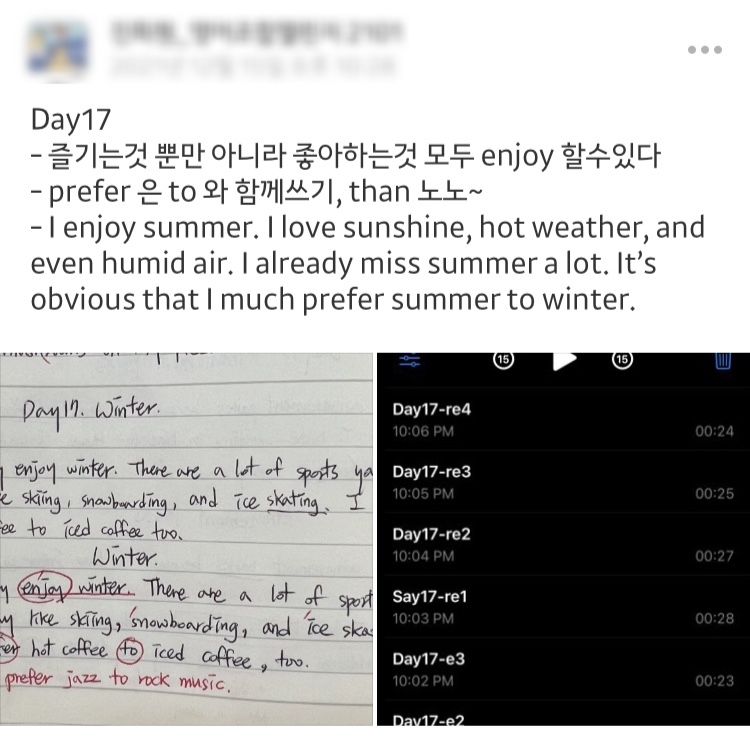 Day17
- 즐기는것 뿐만 아니라 좋아하는것 모두 enjoy 할수있다
- prefer 은 to 와 함께쓰기, than 노노~
- I enjoy summer. I love sunshine, hot weather, and
even humid air. I already miss summer a lot. It's
obvious that I much prefer summer to winter.
Day17. Winter.
enjoy winter. There are a lot of sports
skiing, snowboarding, and ice skating. I
to iced coffee too.
Winter.
enjoy winter. There are a lot of sport
like skiing, snowboarding, and ice ska
hot coffee to iced coffee, too.
prefer jazz to rock music.
15 15
Day17-re4
10:06 PM 00:24
Day17-re3
10:05 PM 00:25
Day17-re2
10:04 PM 00:27
Say17-re1
10:03 PM 00:28
Day17-e3
10:02 PM 00:23
Day17-e2